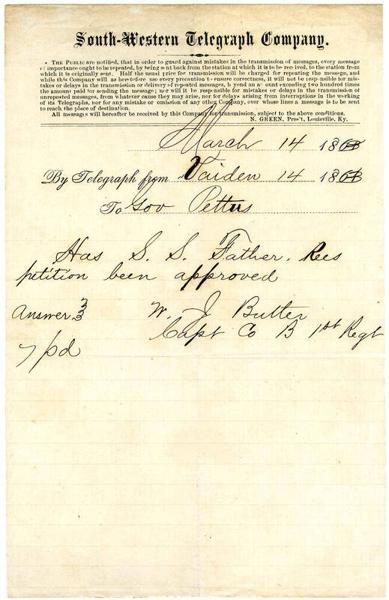 South-Western Telegraph Company.
THE PUBLIC are notified, that in order to guard against mistakes in the transmission of messages, every message
of importance ought to be repeated, by being sent back from the station at which it is to be received, to the station from
which it is originally sent. Half the usual price for transmission will be charged for repeating the message, and
while this Company will as heretofore use every precaution to ensure correctness, it will not be responsible for mis-
takes or delays in the transmission or delivery of repeated messages, beyond an amount exceeding two hundred times
the amount paid for sending the message; nor will it be responsible for mistakes or delays in the transmission of
unrepeated messages, from whatever cause they may arise, nor for delays arising from interruptions in the working
of its Telegraphs, nor for any mistake or omission of any other Company, over whose lines a message is to be sent
to reach the place of destination.
All messages will hereafter be received by this Company for transmission, subject to the above conditions.
N. GREEN, Pres't, Louisville, Ky.
March 14 186
By Telegraph from Vaiden 14 186
To Gov Pettus
Has S. S. Father. Rees
petition been approved
Answer W. J. Butler
Capt Co B 1st Regt
7 pd